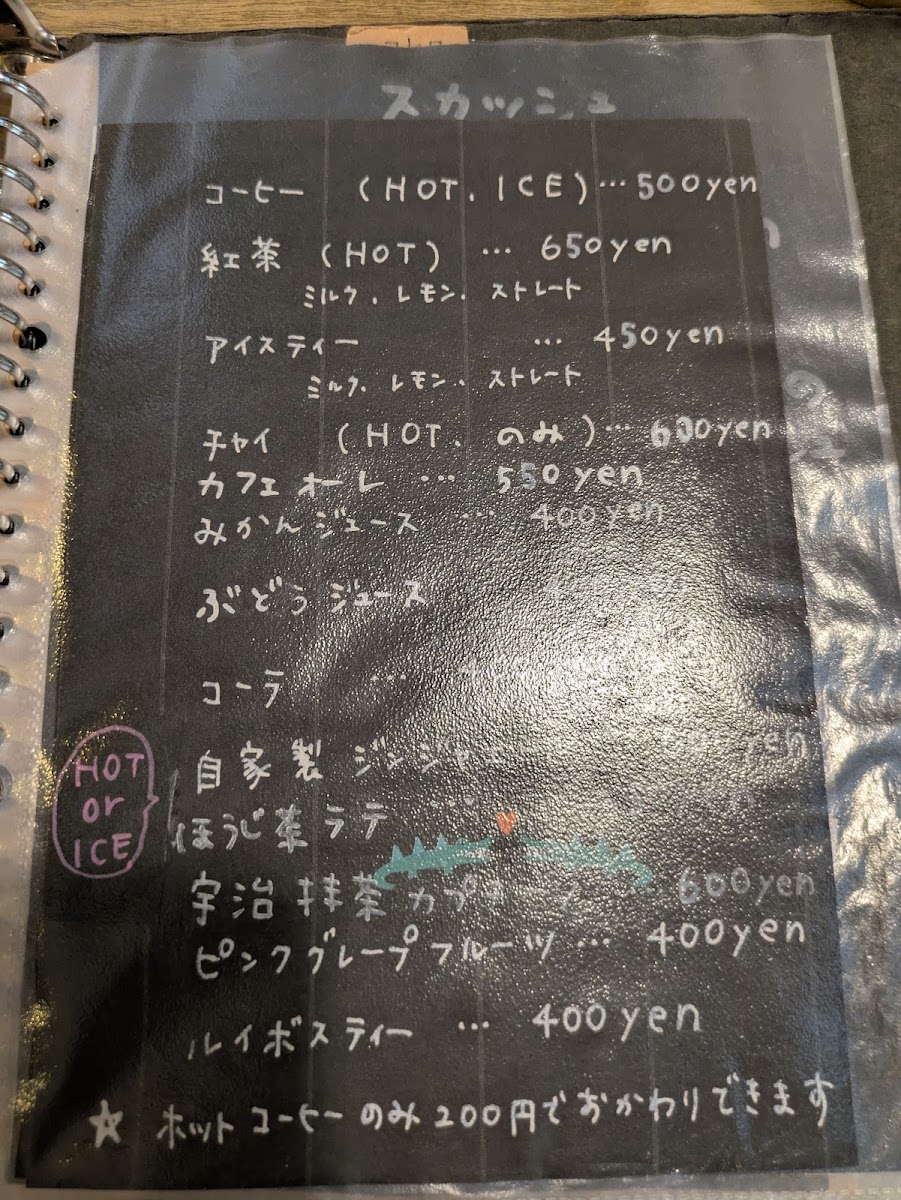 スカッシュ
コーヒー (HOT. ICE)… 500yen
紅茶 (HOT) … 650yen
ミルク. レモン. ストレート
アイスティー … 450yen
ミルク. レモン. ストレート
チャイ (HOT. のみ)… 600yen
カフェオーレ … 550yen
みかんジュース … 400yen
ぶどうジュース
コーラ …
自家製 ジンジャエ yen
ほうじ茶ラテ …
HOT
or
ICE
宇治抹茶カプチーノ 600yen
ピンクグレープフルーツ… 400yen
ルイボスティー … 400yen
☆ ホットコーヒーのみ200円でおかわりできます